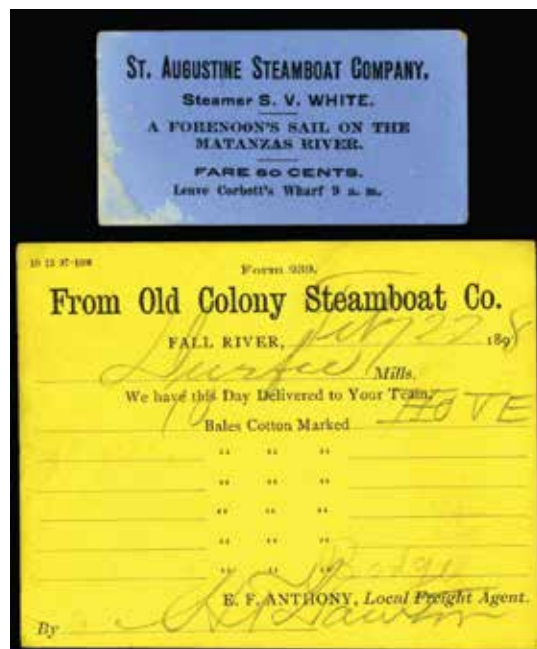 ST. AUGUSTINE STEAMBOAT COMPANY.
Steamer S. V. WHITE.
A FORENOON'S SAIL ON THE
MATANZAS RIVER.
FARE 50 CENTS.
Leave Corbett's Wharf 9 a. m.
Form 939.
From Old Colony Steamboat Co.
FALL RIVER, Feby 22 1898
Durfee Mills.
We have this Day Delivered to Your Team,
10 Bales Cotton Marked HOVE
" " "
" " "
" " "
" " "
" " "
E. F. ANTHONY, Local Freight Agent.
By